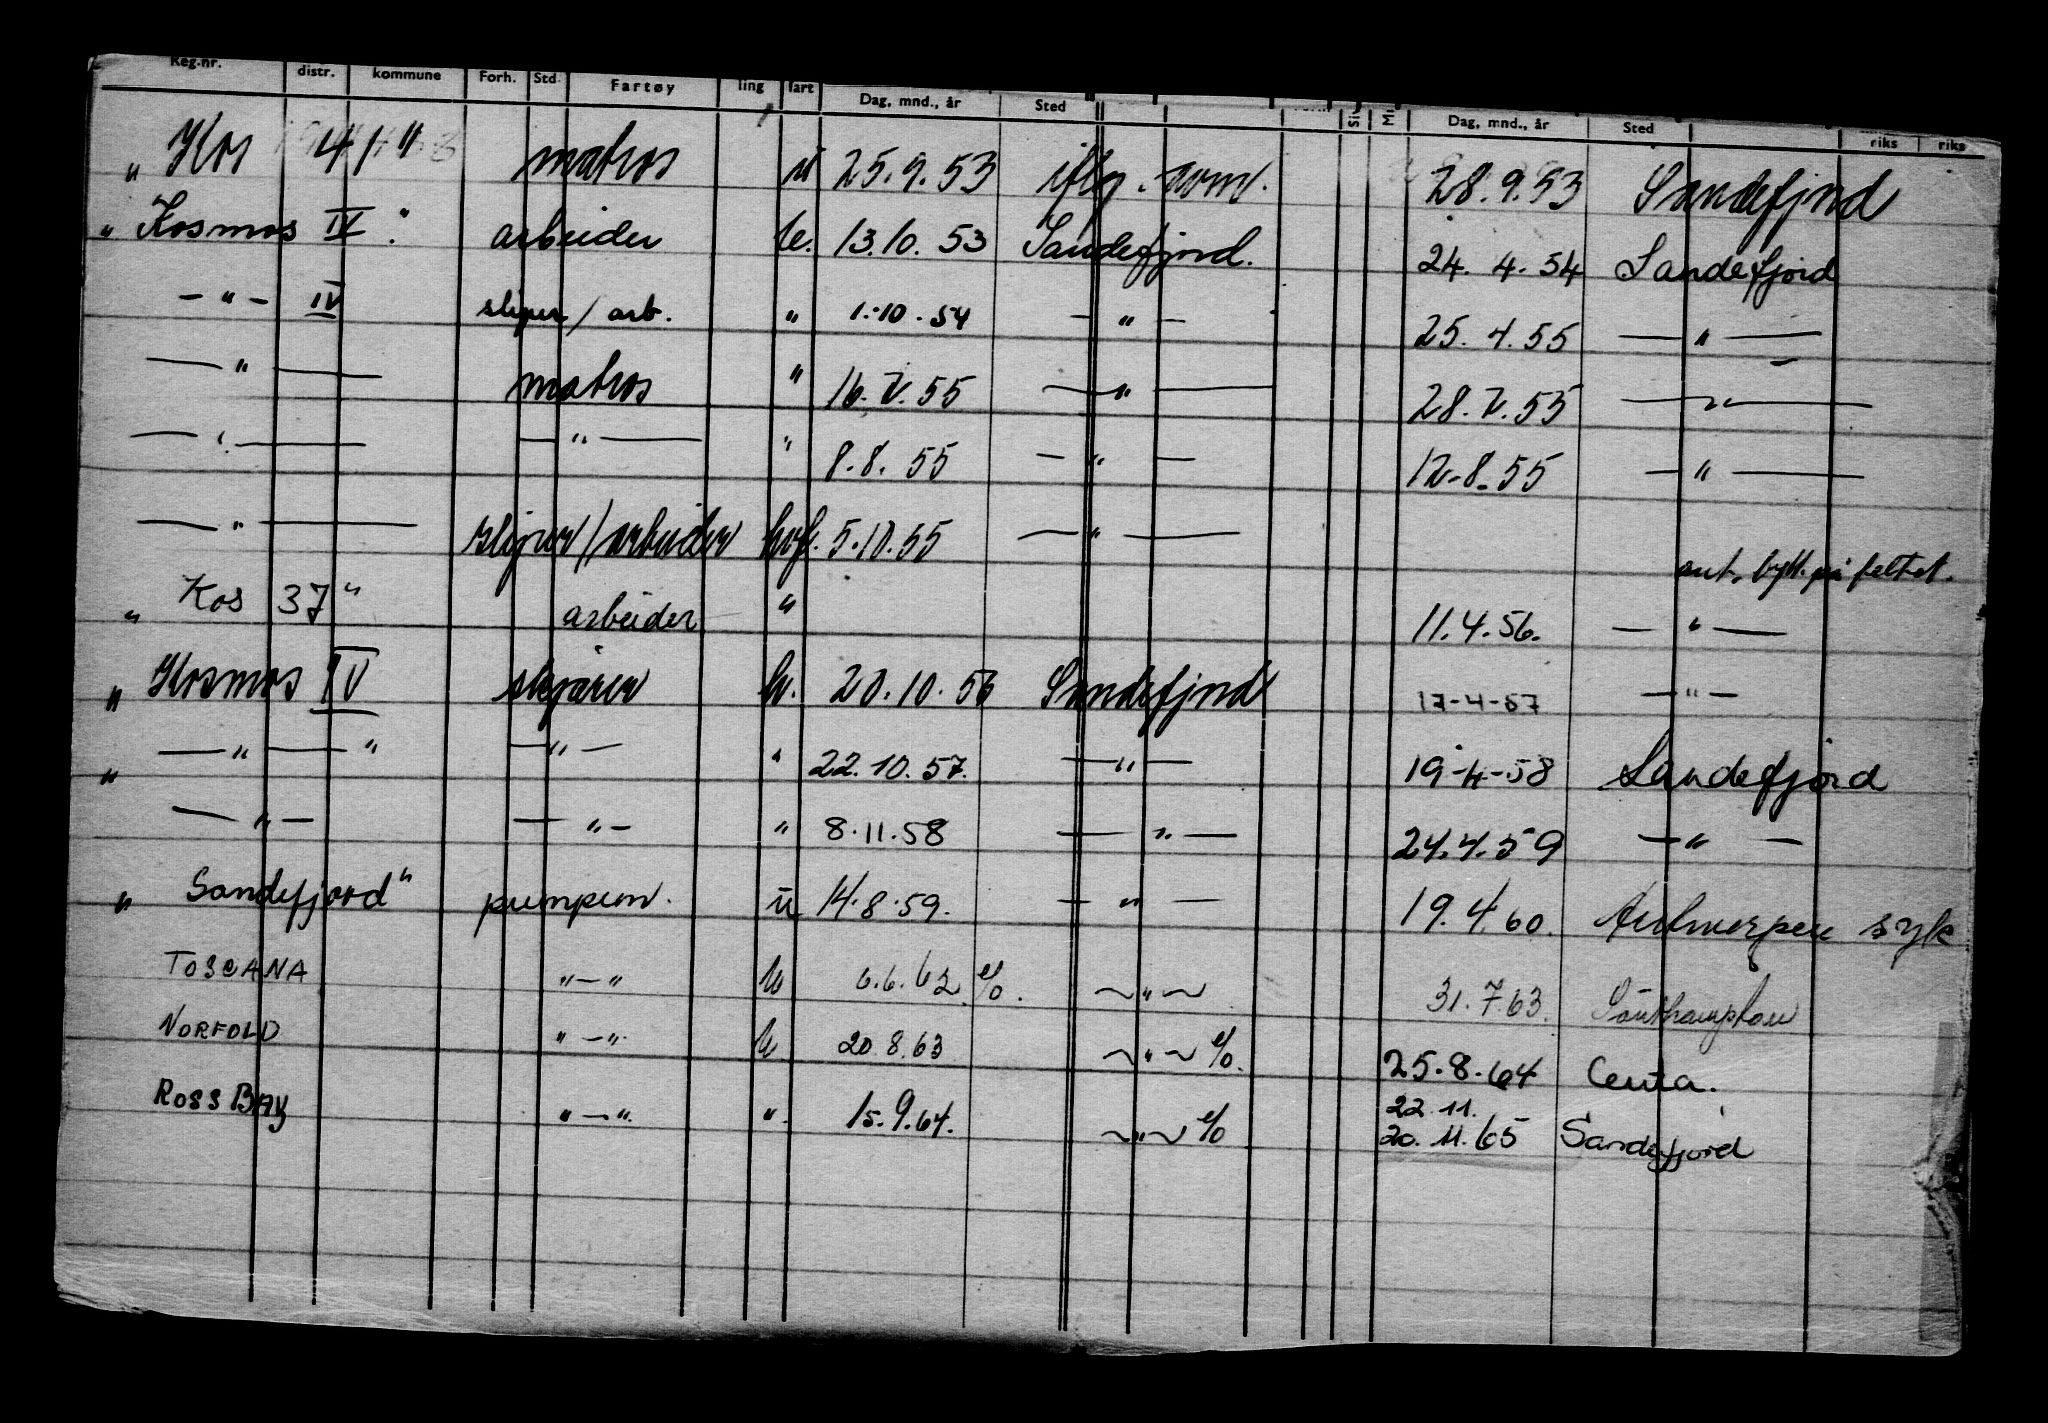 Reg.nr. distr. kommune Forh. Std. Fartøy ling fart Dag, mnd., år Sted Dag, mnd., år Sted riks riks
„ Kos 41 " matros u 25.9.53 28.9.53 Sandefjord
„ Kosmos IV " arbeider u. 13.10.53 Sandefjord. 24.4.54 Sandefjord
— " — IV sliper / arb. " 1.-10.54 — " — 25.4.55 — " —
— " — matros " 16.V.55 — " — 28.V.55 — " —
— " — — " — " 8.8.55 — " — 12.-8.55 — " —
— " — sliper / arbeider 5.10.55 — " —
bytt. på feltet.
„ Kos 37 " arbeider " 11.4.56. — " —
„ Kosmos IV skjærer u. 20.10.56 Sandefjord 17-4-57 — " —
„ — " — " — " — " 22.10.57. — " — 19-4-58 Sandefjord
— " — — " — " 8.11.58 — " — 24.4.59 — " —
„ Sandefjord " pumpem. u 14.8.59. — " — 19.4.60. Antwerpen syk
TOSCANA " — " u 6.6.62 e/o. ~ " ~ 31.7.63. Southampton
NORFOLD " — " u 20.8.63 ~ " ~ e/o. 25.8.64 Ceuta.
ROSS BAY " — " " 15.9.64. ~ " ~ e/o 22.11.
20.11.65 Sandefjord